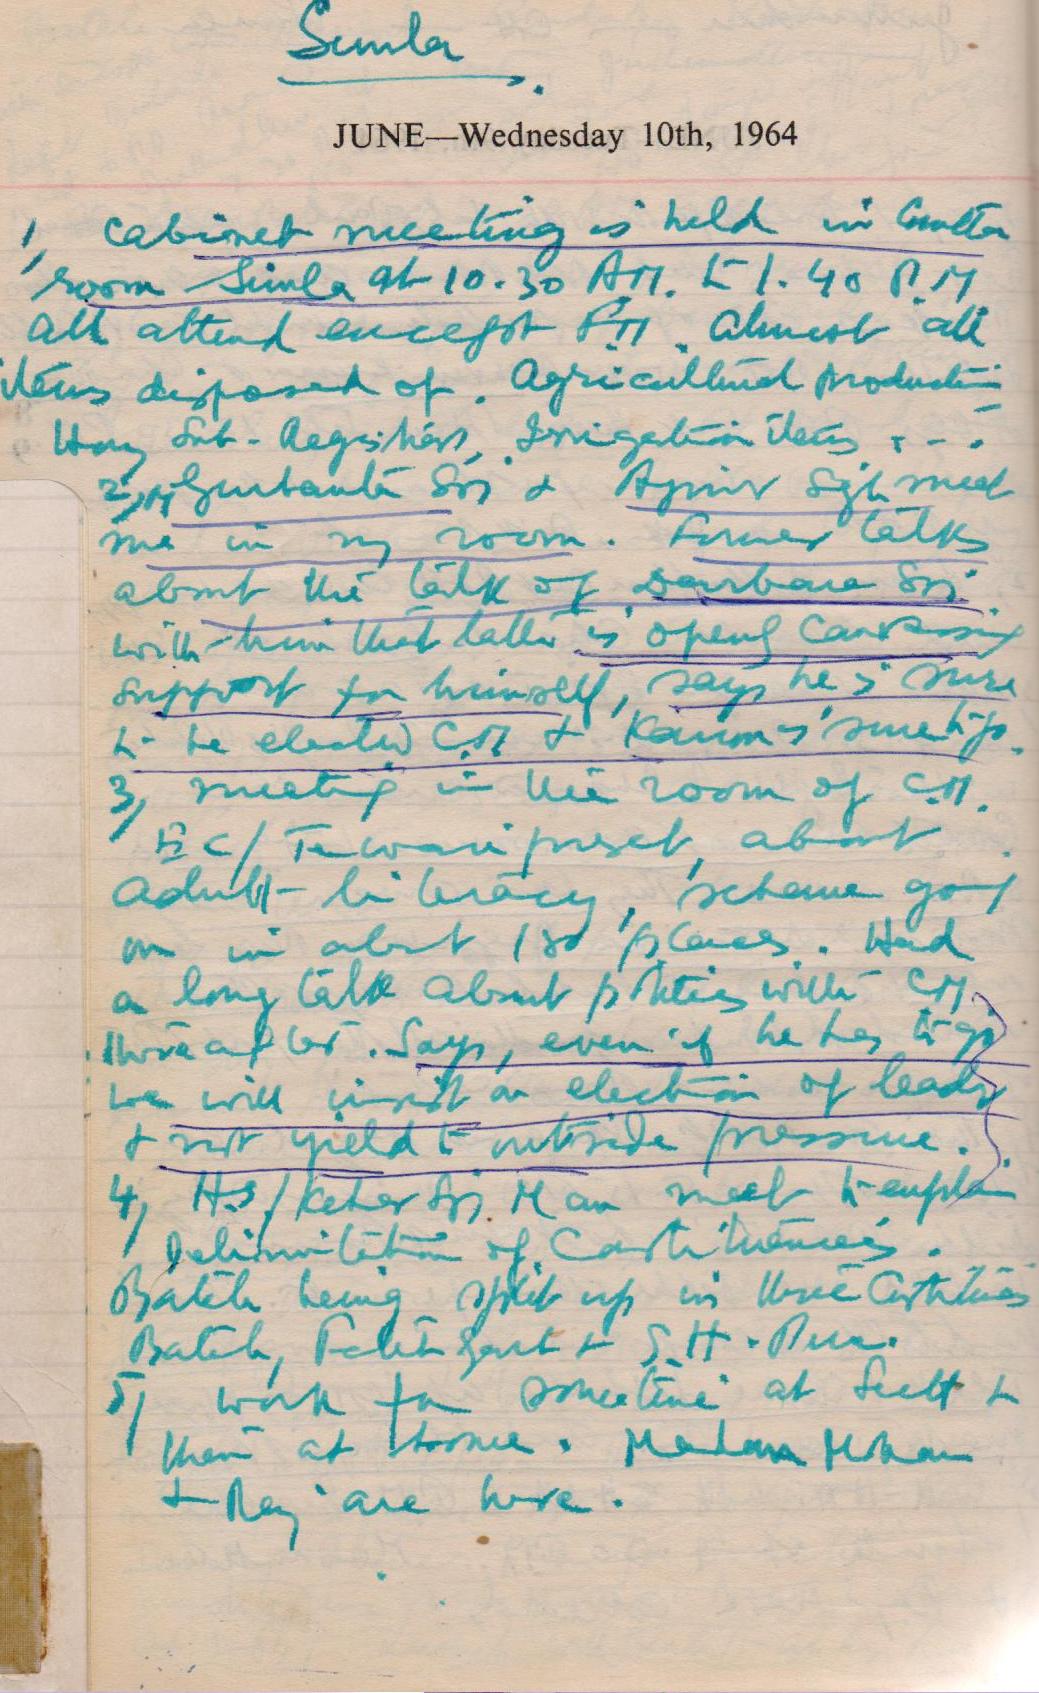 Simla
JUNE—Wednesday 10th, 1964
1, Cabinet meeting is held in Comttee
room Simla at 10.30 AM. to 1.40 P.M
All attend except PM. Almost all
items disposed of. Agricultural Production
Hony Sub-Registrars, Irrigation items . - .
2, Gurbanta Sin & Ajmer Sigh meet
me in my room. Former talks
about the talk of Darbara Sin
with him that latter is openly canvassing
support for himself, says he is sure
to be elected C.M & Kairon is sure to go.
3, meeting in the room of C.M.
EC/ Tewari present, about
Adult literacy, scheme going
on in about 180 places. Had
a long talk about politics with CM
thereafter. Says, even if he has to go
we will insist on election of leader
& not yield to outside pressure.
4, H.S/Kehar Sin Man meet to explain
Delimitation of Constituencies.
Batala being split up in three Constituencies
Batala, Fateh Garh & S.H. Pur.
5, work for sometime at Sectt &
then at home. Madan Mohan
& Raj are here.